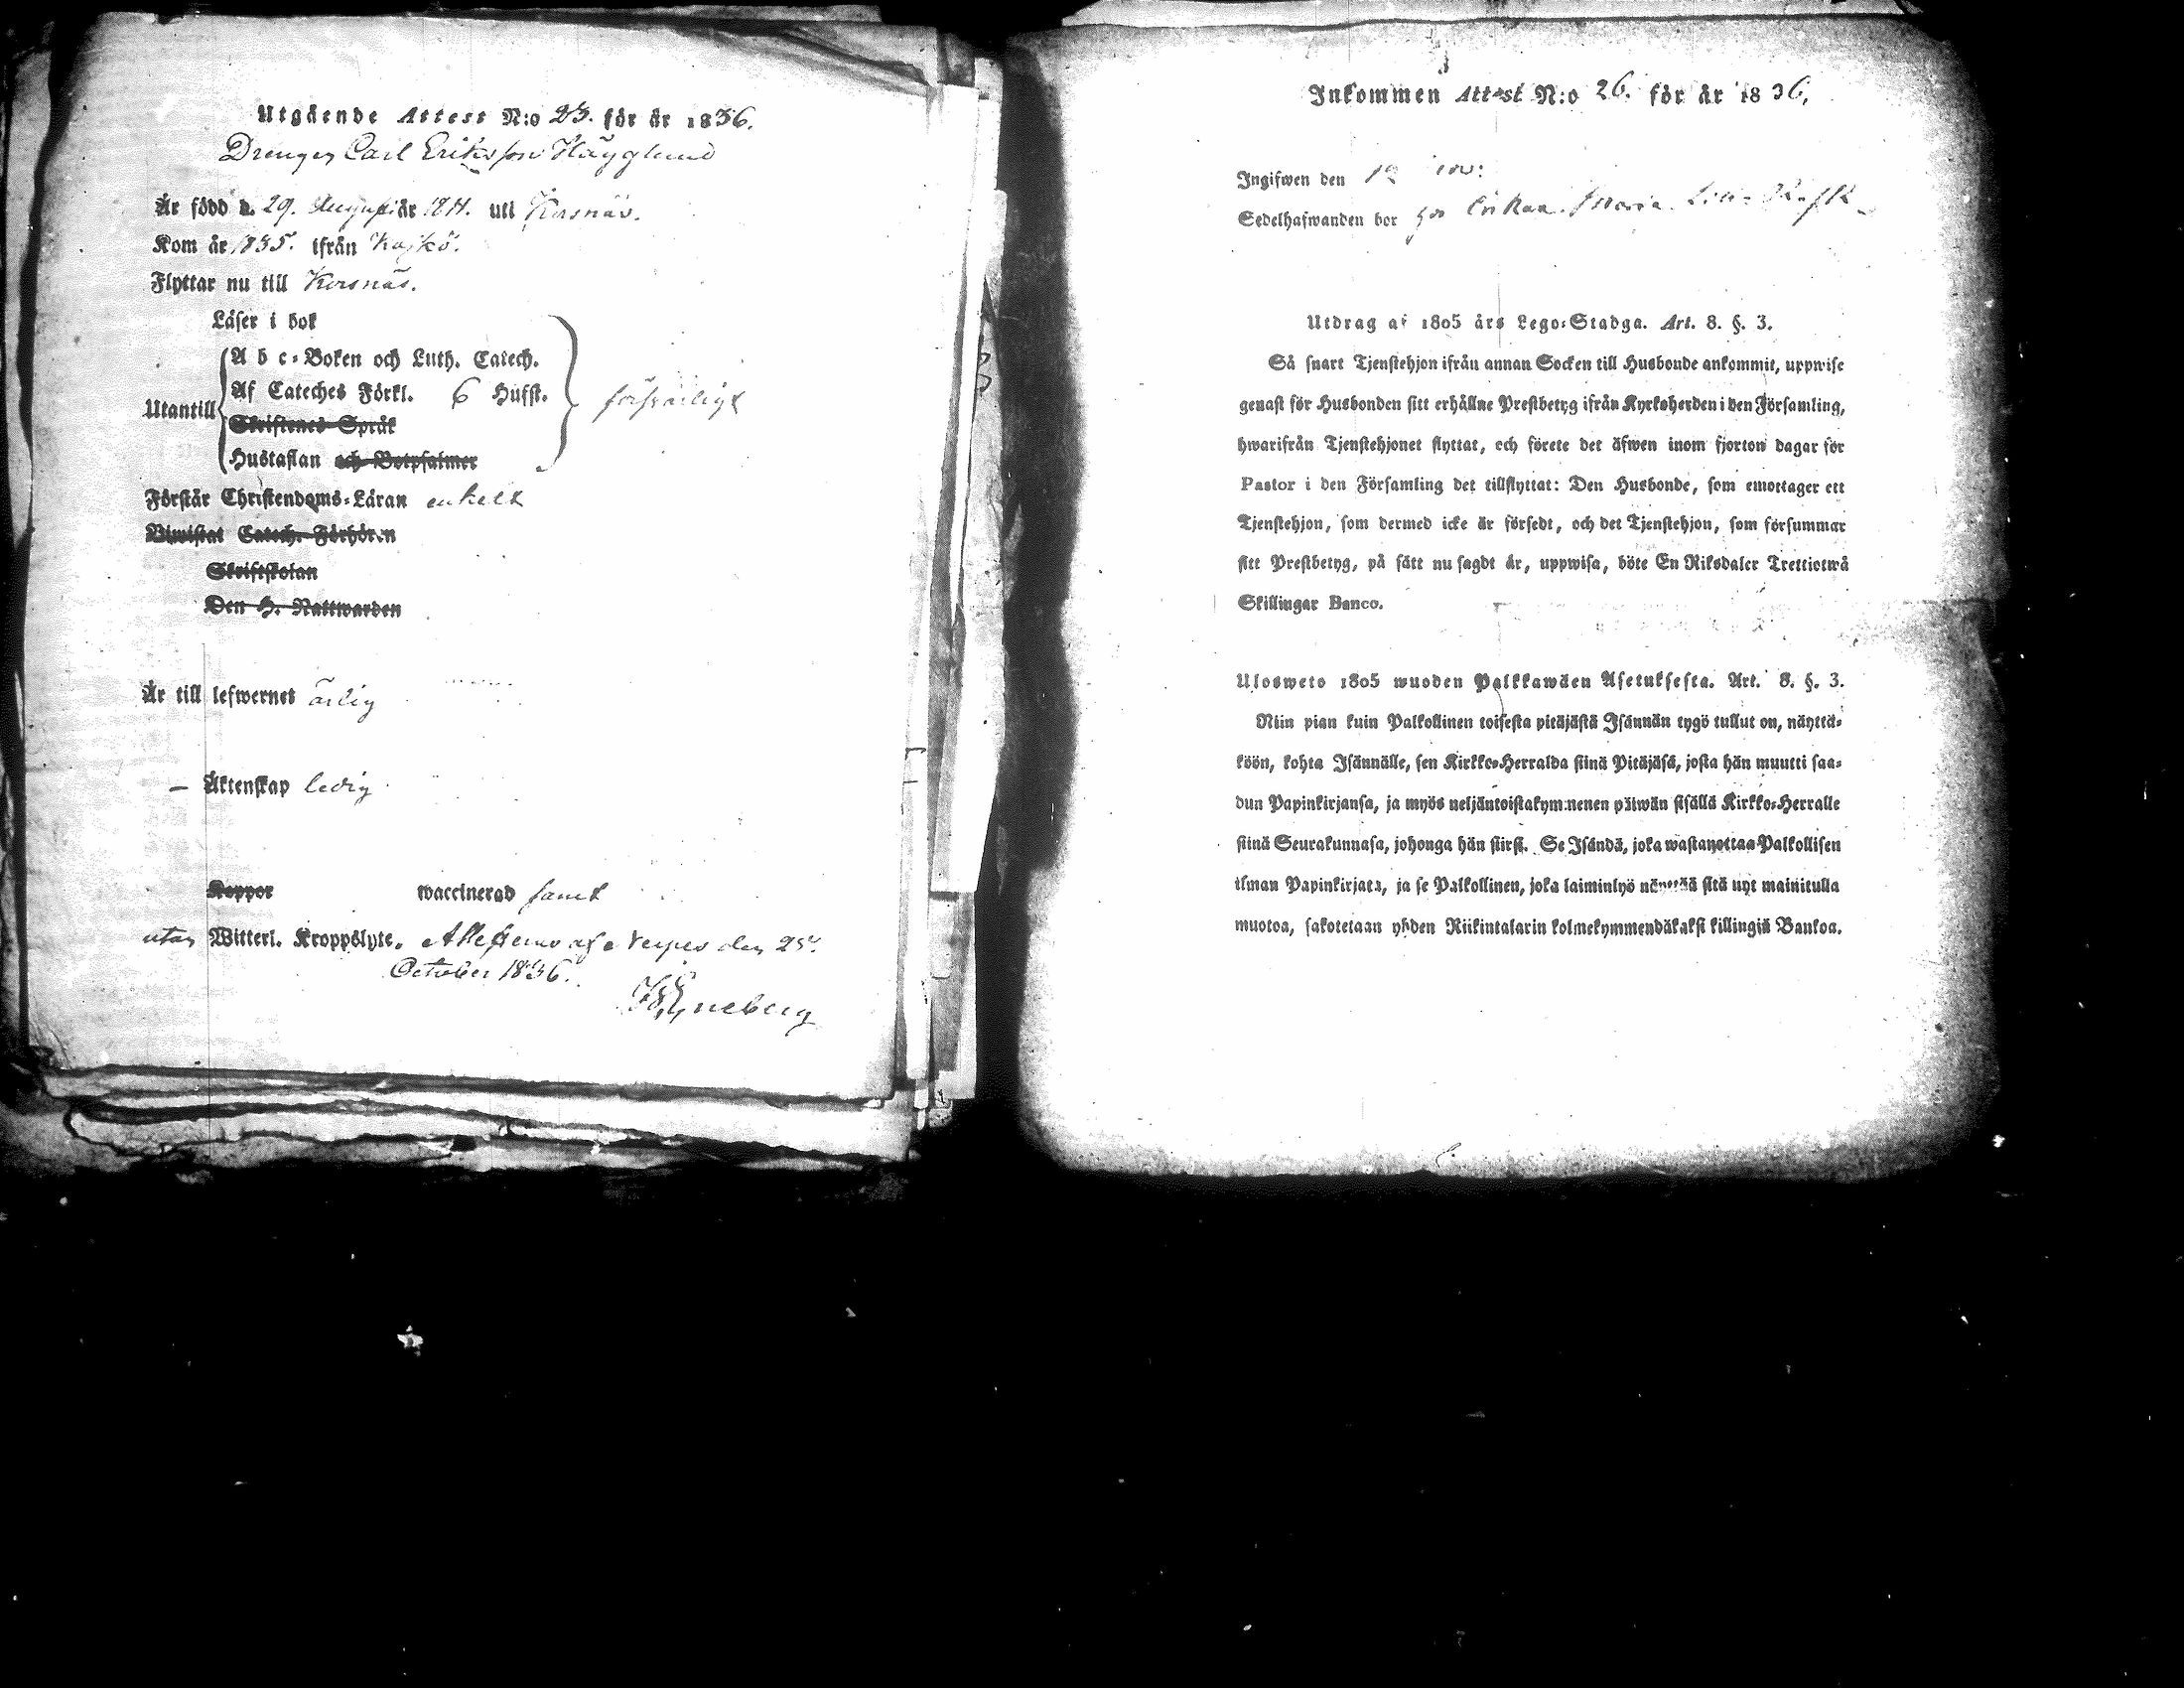 Utgående Attest N:o 23. för år 1836.
Drengen Carl Eriksson Häggelund
Är född d. 29. Augusti år 1811. uti Korsnäs.
Kom år 1835. ifrån
Flyttar nu till Korsnäs.
Läser i bok
Utantill
A b c-Boken och Luth. Catech.
Af Cateches Förkl. 6 Hufst.
Skriftenes Språk
Hustaflan och Botpsalmer
försvarligt
Förstår Christendoms-Läran enkelt
Biwistat Catech. Förhören
Skriftskolan
Den H. Nattwarden
Är till lefwernet ärlig
— Äktenskap ledig
Koppor waccinerad samt
utan Witterl. Kroppslyte. Attesteras af Nerpes den 25.
October 1836.
Inkommen Attest N:o 26. för år 1836.
Ingifwen den 12
Sedelhafwanden bor hos Maria
Utdrag af 1805 års Lego-Stadga. Art. 8. §. 3.
Så snart Tjenstehjon ifrån annan Socken till Husbonde ankommit, uppwise
genast för Husbonden sitt erhållne Prestbetyg ifrån Kyrkoherden i den Församling,
hwarifrån Tjenstehjonet flyttat, och förete det äfwen inom fjorton dagar för
Pastor i den Församling det tillflyttat: Den Husbonde, som emottager ett
Tjenstehjon, som dermed icke är försedt, och det Tjenstehjon, som försummar
sitt Prestbetyg, på sätt nu sagdt är, uppwisa, böte En Riksdaler Trettiotwå
Skillingar Banco.
Ulosweto 1805 wuoden Palkkawäen Asetuksesta. Art. 8. §. 3.
Niin pian kuin Palkollinen toisesta pitäjästä Isännän tygö tullut on, näyttä-
köön, kohta Isännälle, sen Kirkko-Herralda siinä Pitäjäsä, josta hän muutti saa-
dun Papinkirjansa, ja myös neljäntoistakymmenen päiwän sisällä Kirkko-Herralle
siinä Seurakunnasa, johonga hän siirsi. Se Isändä, joka wastanottaa Palkollisen
ilman Papinkirjata, ja se Palkollinen, joka laiminlyö näyttää sitä nyt mainitulla
muotoa, sakotetaan yhden Riikintalarin kolmekymmendäkaksi killingiä Bankoa.